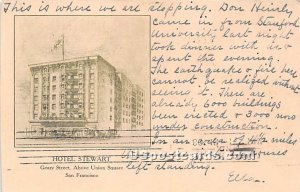 This is where we are stopping. Don Heinly
came in from Stanford
University last night
took dinner with us +
spent the evening.
The earthquake + fire here
cannot be realized without
seeing it. There are
already 6000 buildings
been erected + 3000 now
under construction.
In an area of miles
houses
left standing.
Ella.
HOTEL STEWART
Geary Street, Above Union Square
San Francisco